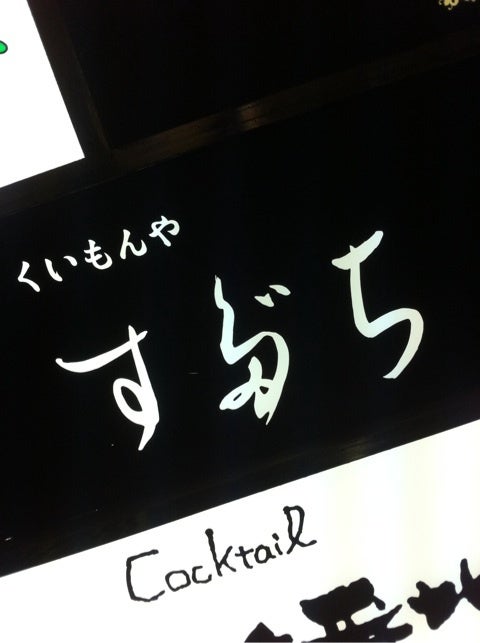 くいもんや
すだち
Cocktail